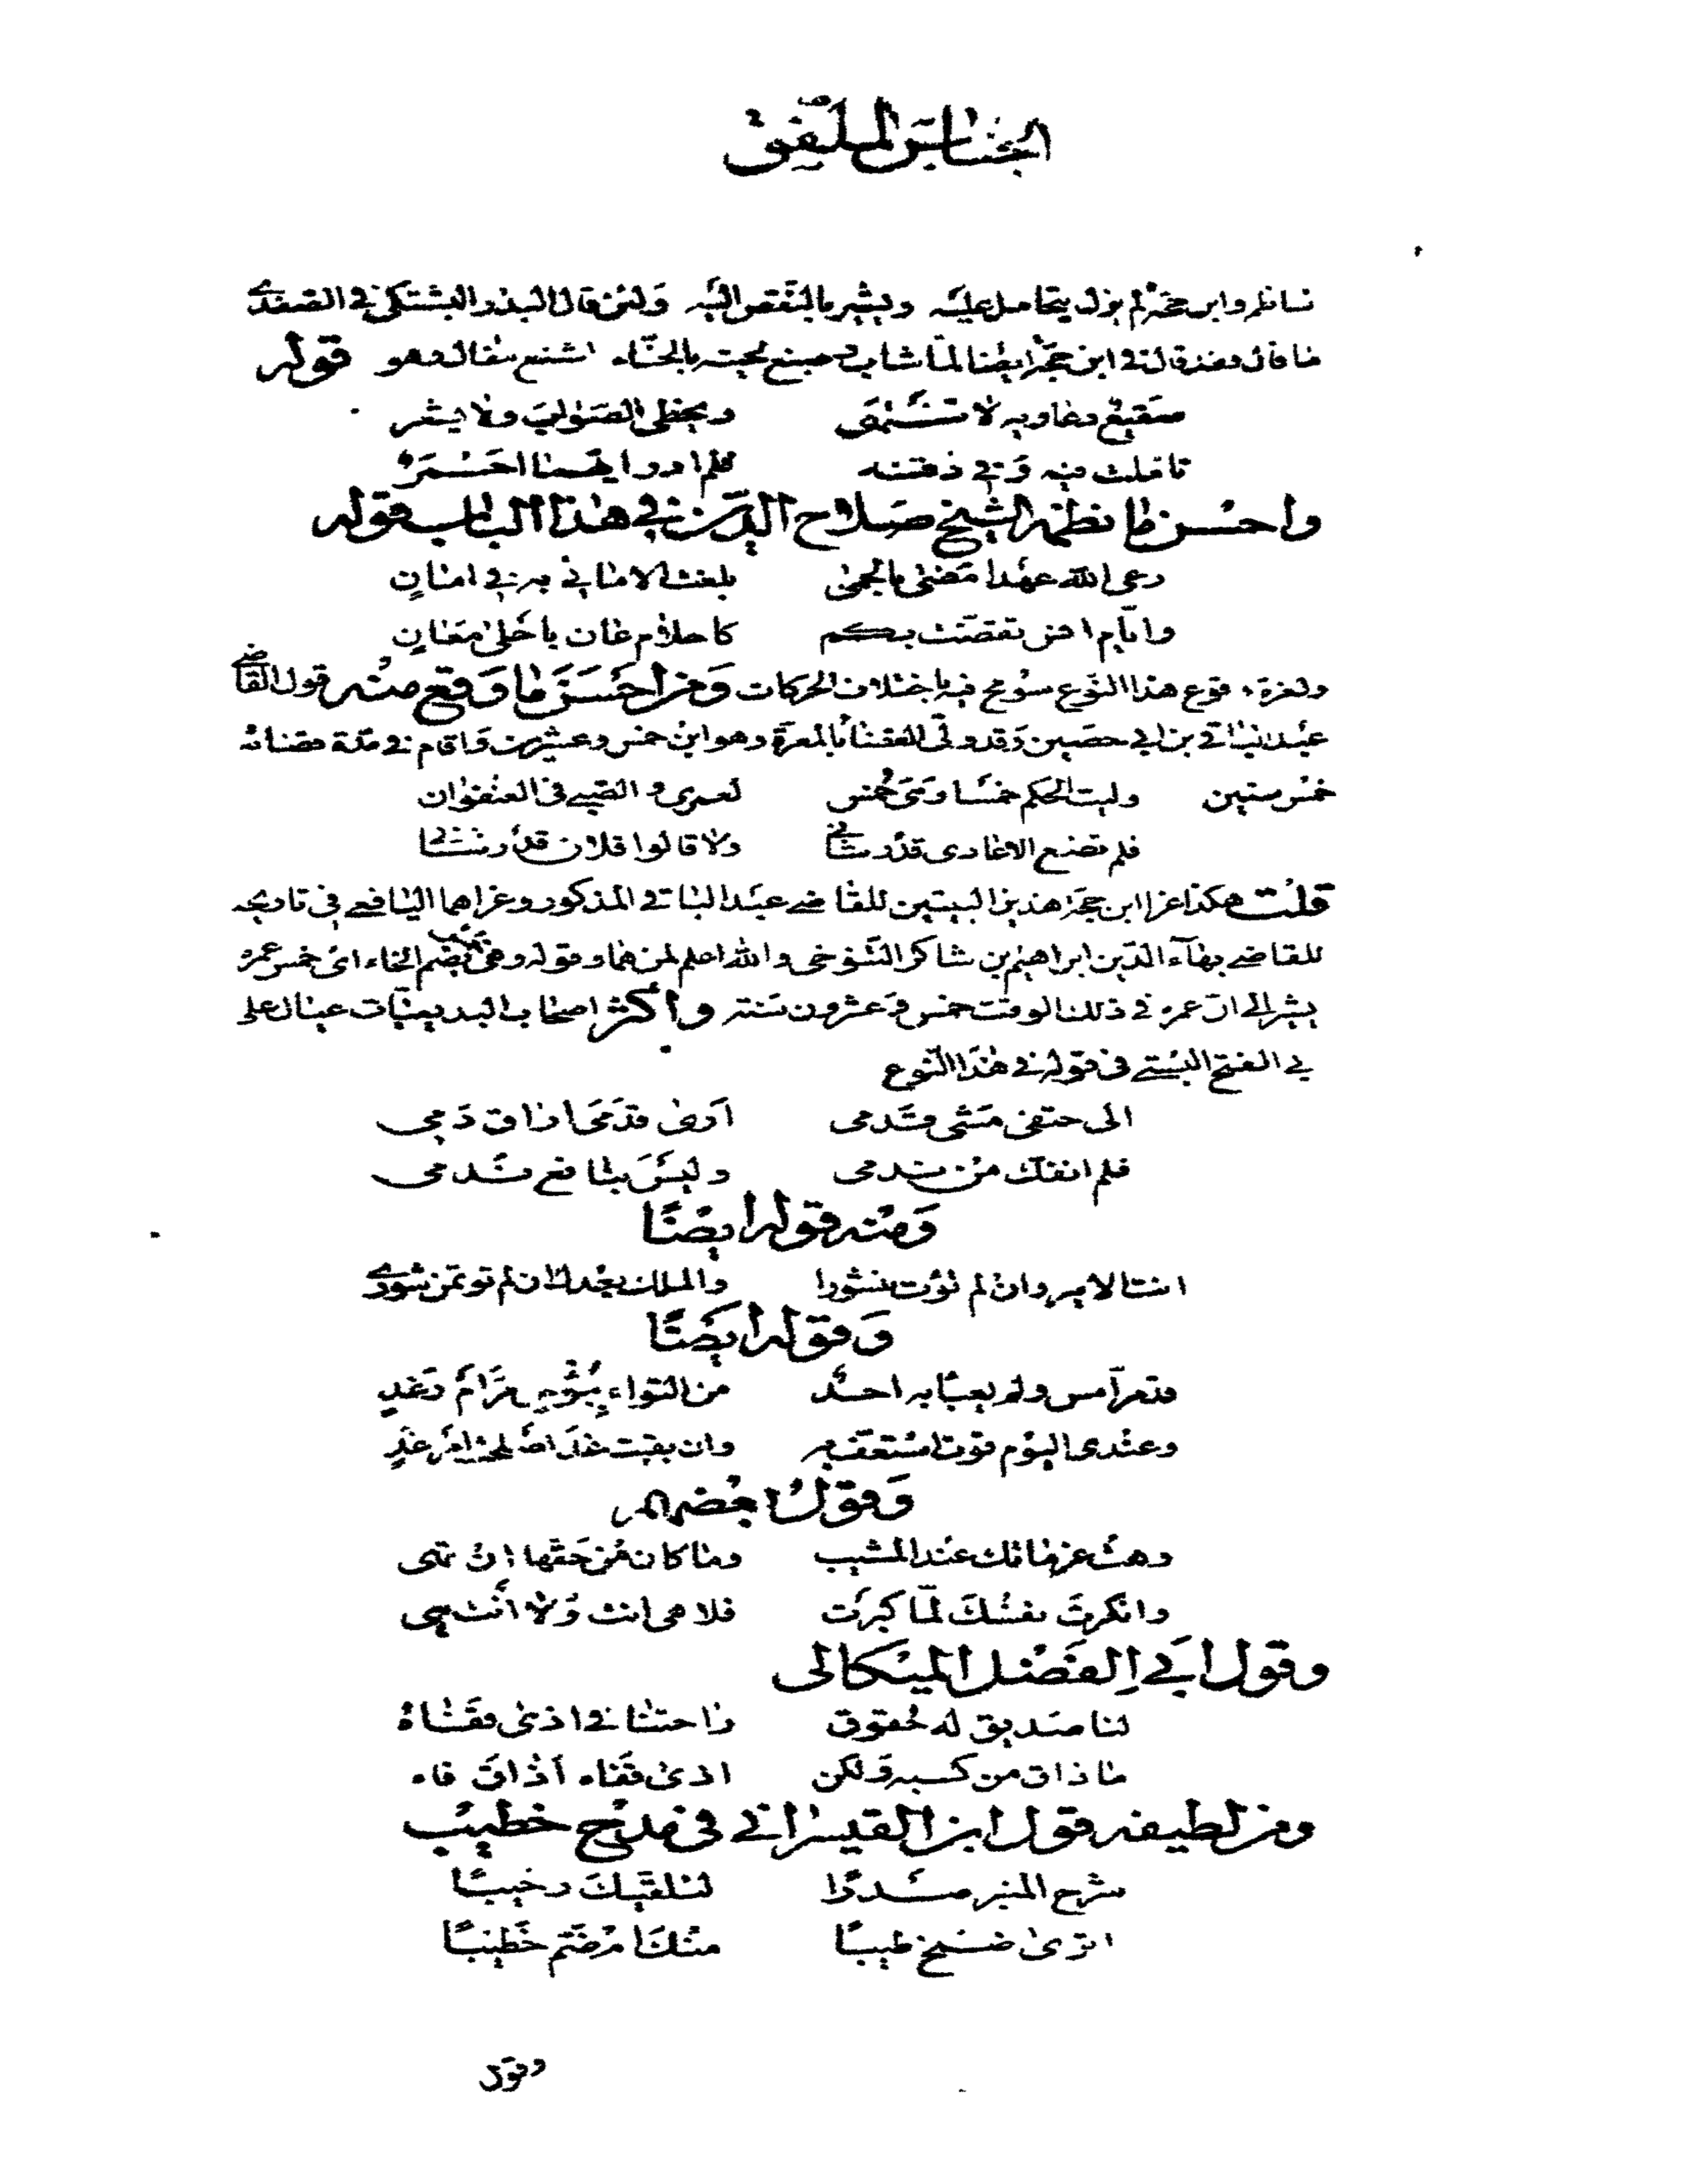 الجناس الملفق
ناظر وابن حجة لم يزل يتحامل عليه ويشير بالنقص اليه ولئن قال البدر البشتكي في الصفدي
ما قال فقد قال في ابن حجة ايضا لما شاب وصبغ لحيته بالحناء اشنع مقال وهو قوله
صقيع دعاويه لا تنتهى ويخطى الصواب ولا يشعر
تاملت فيه وفي ذقنه فلم ادر ايهما احمر
واحسن ما نظمه الشيخ صلاح الدين في هذا الباب قوله
رعى الله عهدا مضى بالحمى بلغت الامانى به في امان
وايام انس تقضت بكم كاحلام عان باحلى معان
ولعزة وقوع هذا النوع سومح فيه باختلاف الحركات ومن احسن ما وقع منه قول القاضي
عبد الباقي بن ابي حصين وقد ولي القضا بالمعرة وهو ابن خمس وعشرين واقام في مدة قضائه
خمس سنين وليت الحكم خمسا وهى خمس لعمرى والصبى فى العنفوان
فلم تضع الاعادى قدر شانى ولا قالوا فلان قد رشانى
قلت هكذا عزا ابن حجة هذين البيتين للقاضي عبد الباقي المذكور وعزاهما اليافعي في تاريخه
للقاضي بهآء الدين ابراهيم بن شاكر التنوخي والله اعلم لمن هما وقوله وهى خمس بضم الخاء اى خمس عمره
يشير الى ان عمره في ذلك الوقت خمس وعشرون سنة واكثر اصحاب البديعيات عيال على
بي الفتح البستي في قوله في هذا النوع
الى حتفى مشى قدمى ارى قدمى اراق دمى
فلم انفك من ندمى وليس بنافع ندمى
ومنه قوله ايضا
انت الامير وان لم تؤت منشورا والملك بعدك ان لم توتمن شورى
وقوله ايضا
فتعر امس ولم يعبا به احد من الثواء ببؤس مر ام رغد
وعندى اليوم قوت استعف به وان بقيت غدا اصلحت امر غد
وقول بعضهم
وهت عزماتك عند المشيب وما كان من حقها ان تهى
وانكرت نفسك لما كبرت فلا هى انت ولا انت هى
وقول ابي الفضل الميكالى
لنا صديق له حقوق راحتنا في اذى قفاه
ما ذاق من كسبه ولكن اذى قفاه أذاق فاه
ومن لطيفه قول ابن القيسرانى فى مدح خطيب
شرح المنبر صدرا لتلقيك رحيبا
اترى ضمخ طيبا منك ام ضم خطيبا
وقول